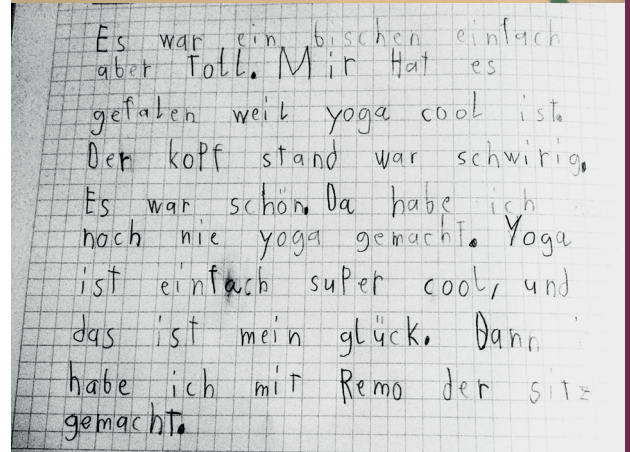 Es war ein bischen einfach
aber Toll. Mir Hat es
gefalen weil yoga cool ist.
Der kopf stand war schwirig.
Es war schön. Da habe ich
noch nie yoga gemacht. Yoga
ist einfach super cool, und
das ist mein glück. Dann
habe ich mit Remo der sitz
gemacht.